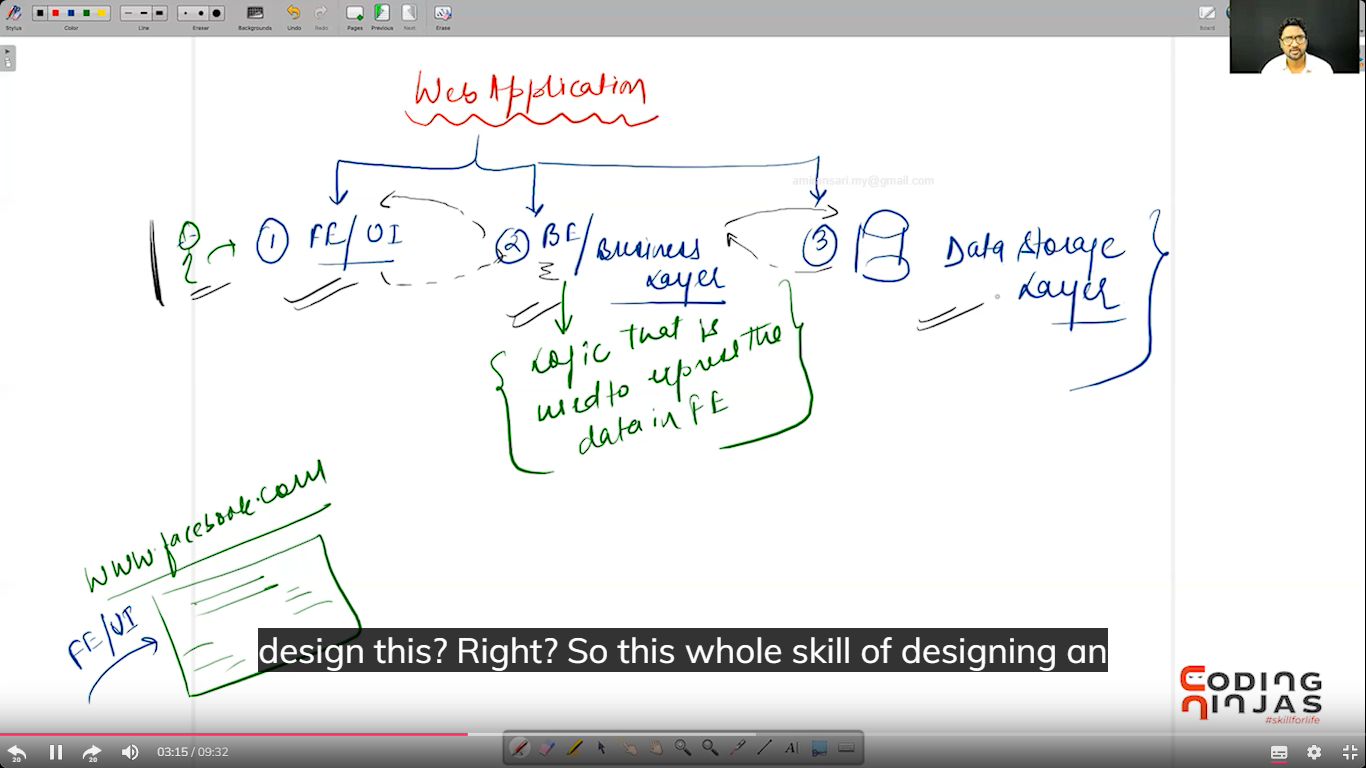 Stylus
Color
Line
Eraser
Backgrounds
Undo
Redo
Pages
Previous
Next
Erase
Board
Web Application
① FE/UI
② BE/Business
Layer
③ Data Storage
Layer
Logic that is
used to represe the
data in FE
www.facebook.com
FE/UI
design this? Right? So this whole skill of designing an
CODING
NINJAS
#skillforlife
20
20
03:15 / 09:32